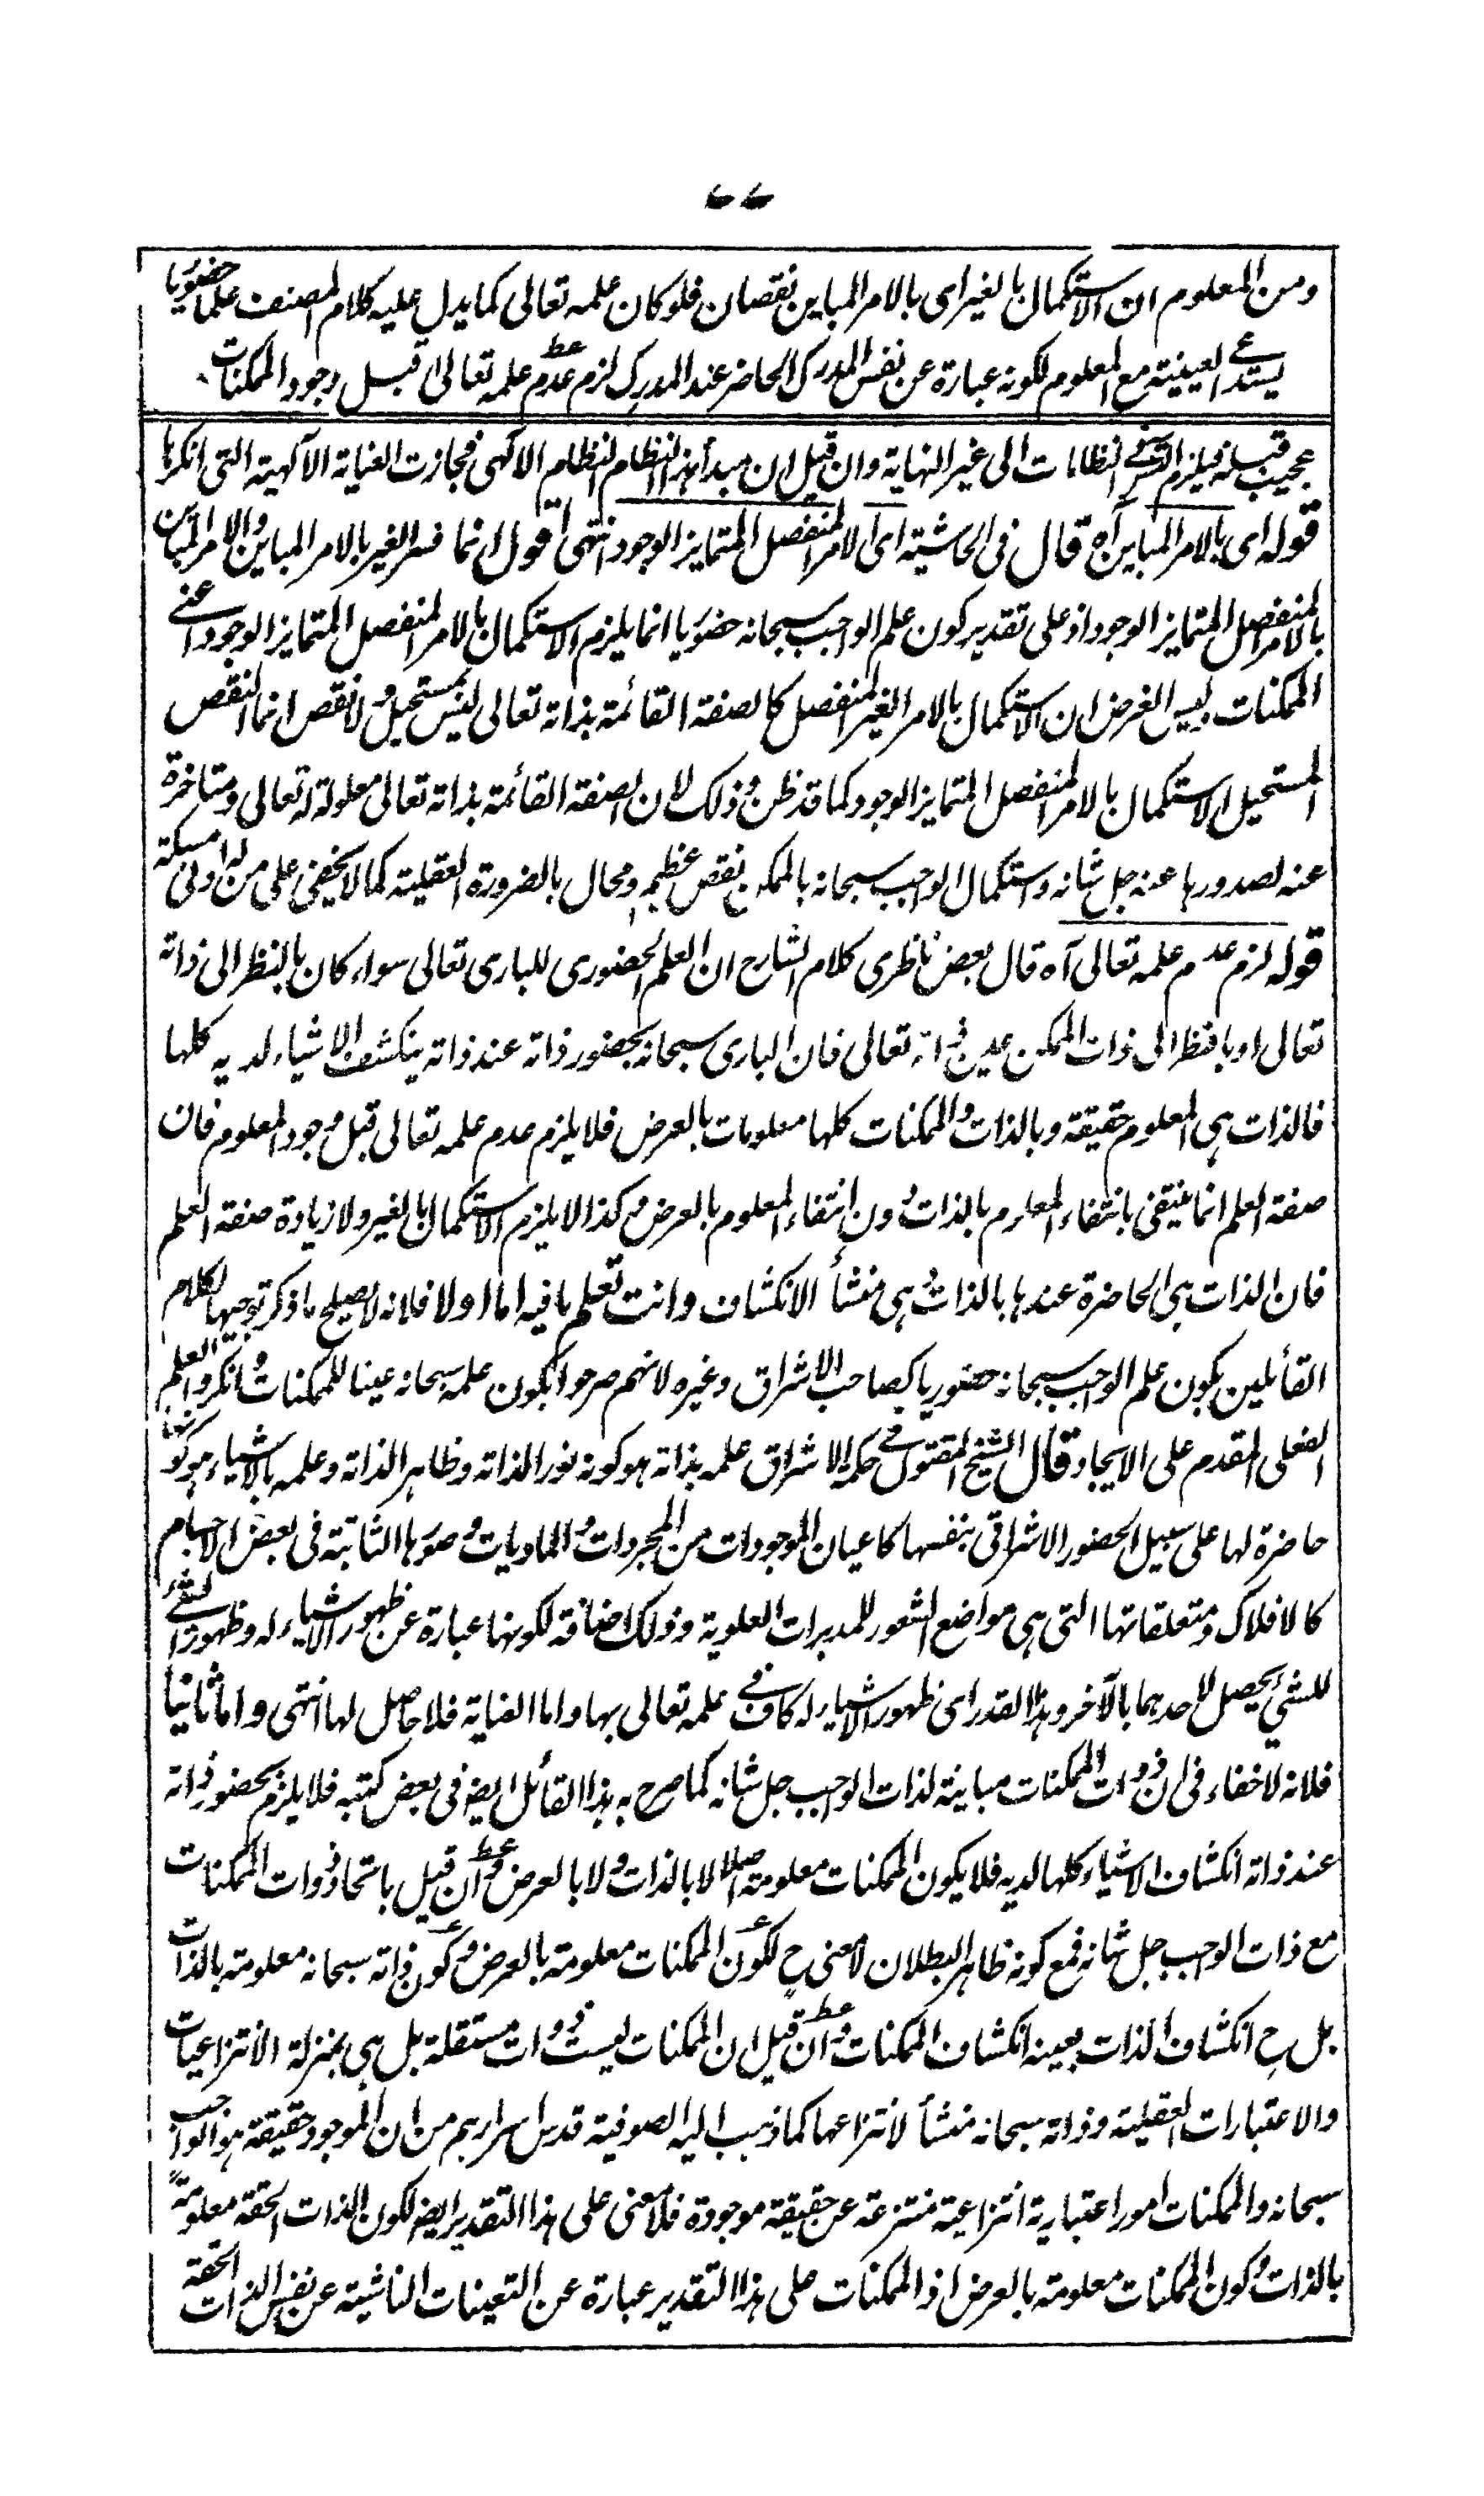 ٧٧
ومن المعلوم ان الاستكمال بالغير اى بالامر المباين نقصان فلو كان علمه تعالى كما يدل عليه كلام المصنف علما حضوريا
يستدعى العينية مع المعلوم لكونه عبارة عن نفس المدرك الحاضر عند المدرك لزم عدم علمه تعالى قبل وجود الممكنات
عجيب قبله فيلزم النظامات الى غير النهاية وان قيل ان مبدأ هذا النظام النظام الالهى فجازت العناية الآلهية التى انكرها
قوله اى بالامر المباين آه قال فى الحاشية اى الامر المنفصل المتمايز الوجود انتهى اقول انما فسر الغير بالامر المباين والامر المباين
بالامر المنفصل المتمايز الوجود اذ على تقدير كون علم الواجب سبحانه حضوريا انما يلزم الاستكمال بالامر المنفصل المتمايز الوجود اعنى
الممكنات ليس الغرض ان الاستكمال بالامر الغير المنفصل كالصفة القائمة بذاته تعالى ليس بمستحيل ولا نقص انما النقص
المستحيل الاستكمال بالامر المنفصل المتمايز الوجود كما قد ظن وذلك لان الصفة القائمة بذاته تعالى معلولة له تعالى ومتاخرة
عنه لصدورها عنه جل شانه واستكمال الواجب سبحانه بالممكن نقص عظيم ومحال بالضرورة العقلية كما لا يخفى على من له ادنى مسكة
قوله لزم عدم علمه تعالى آه قال بعض ناظرى كلام الشارح ان العلم الحضورى للبارى تعالى سواء كان بالنظر الى ذاته
تعالى او بالنظر الى ذات الممكن عين ذاته تعالى فان البارى سبحانه بحضور ذاته عند ذاته ينكشف الاشياء لديه كلها
فالذات هى المعلوم حقيقة وبالذات والممكنات كلها معلومات بالعرض فلا يلزم عدم علمه تعالى قبل وجود المعلوم فان
صفة العلم انما ينتفى بانتفاء المعلوم بالذات دون انتفاء المعلوم بالعرض وكذا لا يلزم الاستكمال بالغير ولا زيادة صفة العلم
فان الذات هى الحاضرة عندها بالذات وهى منشأ الانكشاف وانت تعلم ما فيه اما اولا فلانه لا يصلح ما ذكر توجيها لكلام
القائلين بكون علم الواجب سبحانه حضوريا كصاحب الاشراق وغيره لانهم صرحوا بكون علمه سبحانه عينا للممكنات وانكروا العلم
الفعلى المقدم على الايجاد قال الشيخ المقتول فى حكمة الاشراق علمه بذاته هو كونه نورا لذاته وظاهرا لذاته وعلمه بالاشياء هو كونها
حاضرة لها على سبيل الحضور الاشراقى بنفسها كاعيان الموجودات من المجردات والماديات وصورها الثابتة فى بعض الاجسام
كالافلاك ومتعلقاتها التى هى مواضع الشعور للمدبرات العلوية وذلك اضافة لكونها عبارة عن ظهور الاشياء له وظهور الشئ
للشئ يحصل لاحدهما بالآخر وهذا القدر اى ظهور الاشياء له كاف فى علمه تعالى بها واما العناية فلا حاصل لها انتهى واما ثانيا
فلانه لا خفاء فى ان ذوات الممكنات مباينة لذات الواجب جل شانه كما صرح به هذا القائل ايضا فى بعض كتبه فلا يلزم بحضور ذاته
عند ذاته انكشاف الاشياء كلها لديه فلا يكون الممكنات معلومة اصلا لا بالذات ولا بالعرض وان قيل باتحاد ذوات الممكنات
مع ذات الواجب جل شانه فمع كونه ظاهر البطلان لا معنى ح لكون الممكنات معلومة بالعرض وكون ذاته سبحانه معلومة بالذات
بل ح انكشاف الذات بعينه انكشاف الممكنات وان قيل ان الممكنات ليست ذوات مستقلة بل هى بمنزلة الانتزاعيات
والاعتبارات العقلية وذاته سبحانه منشأ لانتزاعها كما ذهب اليه الصوفية قدس اسرارهم من ان الموجود حقيقة هو الواجب
سبحانه والممكنات امور اعتبارية انتزاعية منتزعة عن حقيقة موجودة فلا معنى على هذا التقدير ايضا لكون الذات الحقة معلومة
بالذات وكون الممكنات معلومة بالعرض اذ الممكنات على هذا التقدير عبارة عن التعينات الناشية عن نفس الذات الحقة